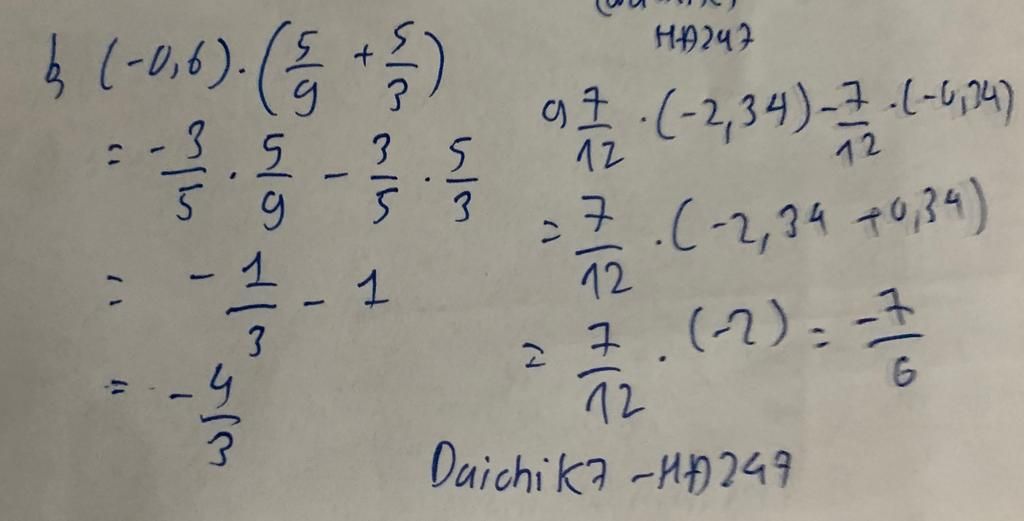 HĐ247
b, (-0,6).(5/9 + 5/3)
= -3/5 . 5/9 - 3/5 . 5/3
= -1/3 - 1
= -4/3
a, 7/12 . (-2,34) - 7/12 . (-0,34)
= 7/12 . (-2,34 + 0,34)
= 7/12 . (-2) = -7/6
Daichik7 - HĐ247